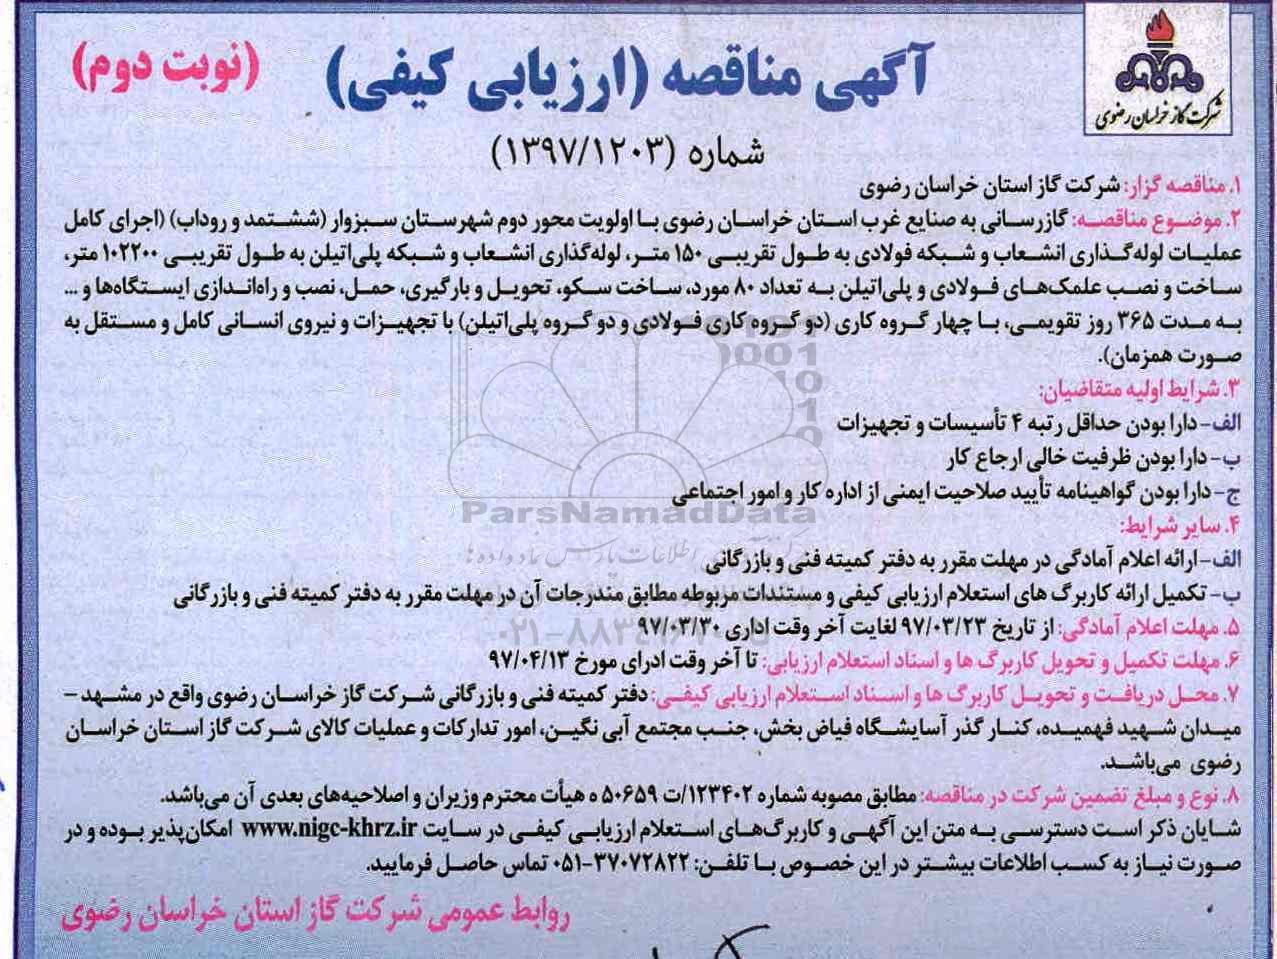 شرکت گاز خراسان رضوی
آگهی مناقصه (ارزیابی کیفی)
(نوبت دوم)
شماره (۱۳۹۷/۱۲۰۳)
۱. مناقصه گزار: شرکت گاز استان خراسان رضوی
۲. موضوع مناقصه: گازرسانی به صنایع غرب استان خراسان رضوی با اولویت محور دوم شهرستان سبزوار (ششتمد و روداب) (اجرای کامل
عملیات لوله‌گذاری انشعاب و شبکه فولادی به طول تقریبی ۱۵۰ متر، لوله‌گذاری انشعاب و شبکه پلی‌اتیلن به طول تقریبی ۱۰۲۲۰۰ متر،
ساخت و نصب علمک‌های فولادی و پلی‌اتیلن به تعداد ۸۰ مورد، ساخت سکو، تحویل و بارگیری، حمل، نصب و راه‌اندازی ایستگاه‌ها و ...
به مدت ۳۶۵ روز تقویمی، با چهار گروه کاری (دو گروه کاری فولادی و دو گروه پلی‌اتیلن) با تجهیزات و نیروی انسانی کامل و مستقل به
صورت همزمان).
۳. شرایط اولیه متقاضیان:
الف- دارا بودن حداقل رتبه ۴ تأسیسات و تجهیزات
ب- دارا بودن ظرفیت خالی ارجاع کار
ج- دارا بودن گواهینامه تأیید صلاحیت ایمنی از اداره کار و امور اجتماعی
ParsNamadData
۴. سایر شرایط:
الف- ارائه اعلام آمادگی در مهلت مقرر به دفتر کمیته فنی و بازرگانی
ب- تکمیل ارائه کاربرگ های استعلام ارزیابی کیفی و مستندات مربوطه مطابق مندرجات آن در مهلت مقرر به دفتر کمیته فنی و بازرگانی
۵. مهلت اعلام آمادگی: از تاریخ ۹۷/۰۳/۲۳ لغایت آخر وقت اداری ۹۷/۰۳/۳۰
۶. مهلت تکمیل و تحویل کاربرگ ها و اسناد استعلام ارزیابی: تا آخر وقت ادرای مورخ ۹۷/۰۴/۱۳
۷. محل دریافت و تحویل کاربرگ ها و اسناد استعلام ارزیابی کیفی: دفتر کمیته فنی و بازرگانی شرکت گاز خراسان رضوی واقع در مشهد –
میدان شهید فهمیده، کنار گذر آسایشگاه فیاض بخش، جنب مجتمع آبی نگین، امور تدارکات و عملیات کالای شرکت گاز استان خراسان
رضوی می‌باشد.
۸. نوع و مبلغ تضمین شرکت در مناقصه: مطابق مصوبه شماره ۱۲۳۴۰۲/ت ۵۰۶۵۹ ه هیأت محترم وزیران و اصلاحیه‌های بعدی آن می‌باشد.
شایان ذکر است دسترسی به متن این آگهی و کاربرگ‌های استعلام ارزیابی کیفی در سایت www.nigc-khrz.ir امکان‌پذیر بوده و در
صورت نیاز به کسب اطلاعات بیشتر در این خصوص با تلفن: ۳۷۰۷۲۸۲۲-۰۵۱ تماس حاصل فرمایید.
روابط عمومی شرکت گاز استان خراسان رضوی